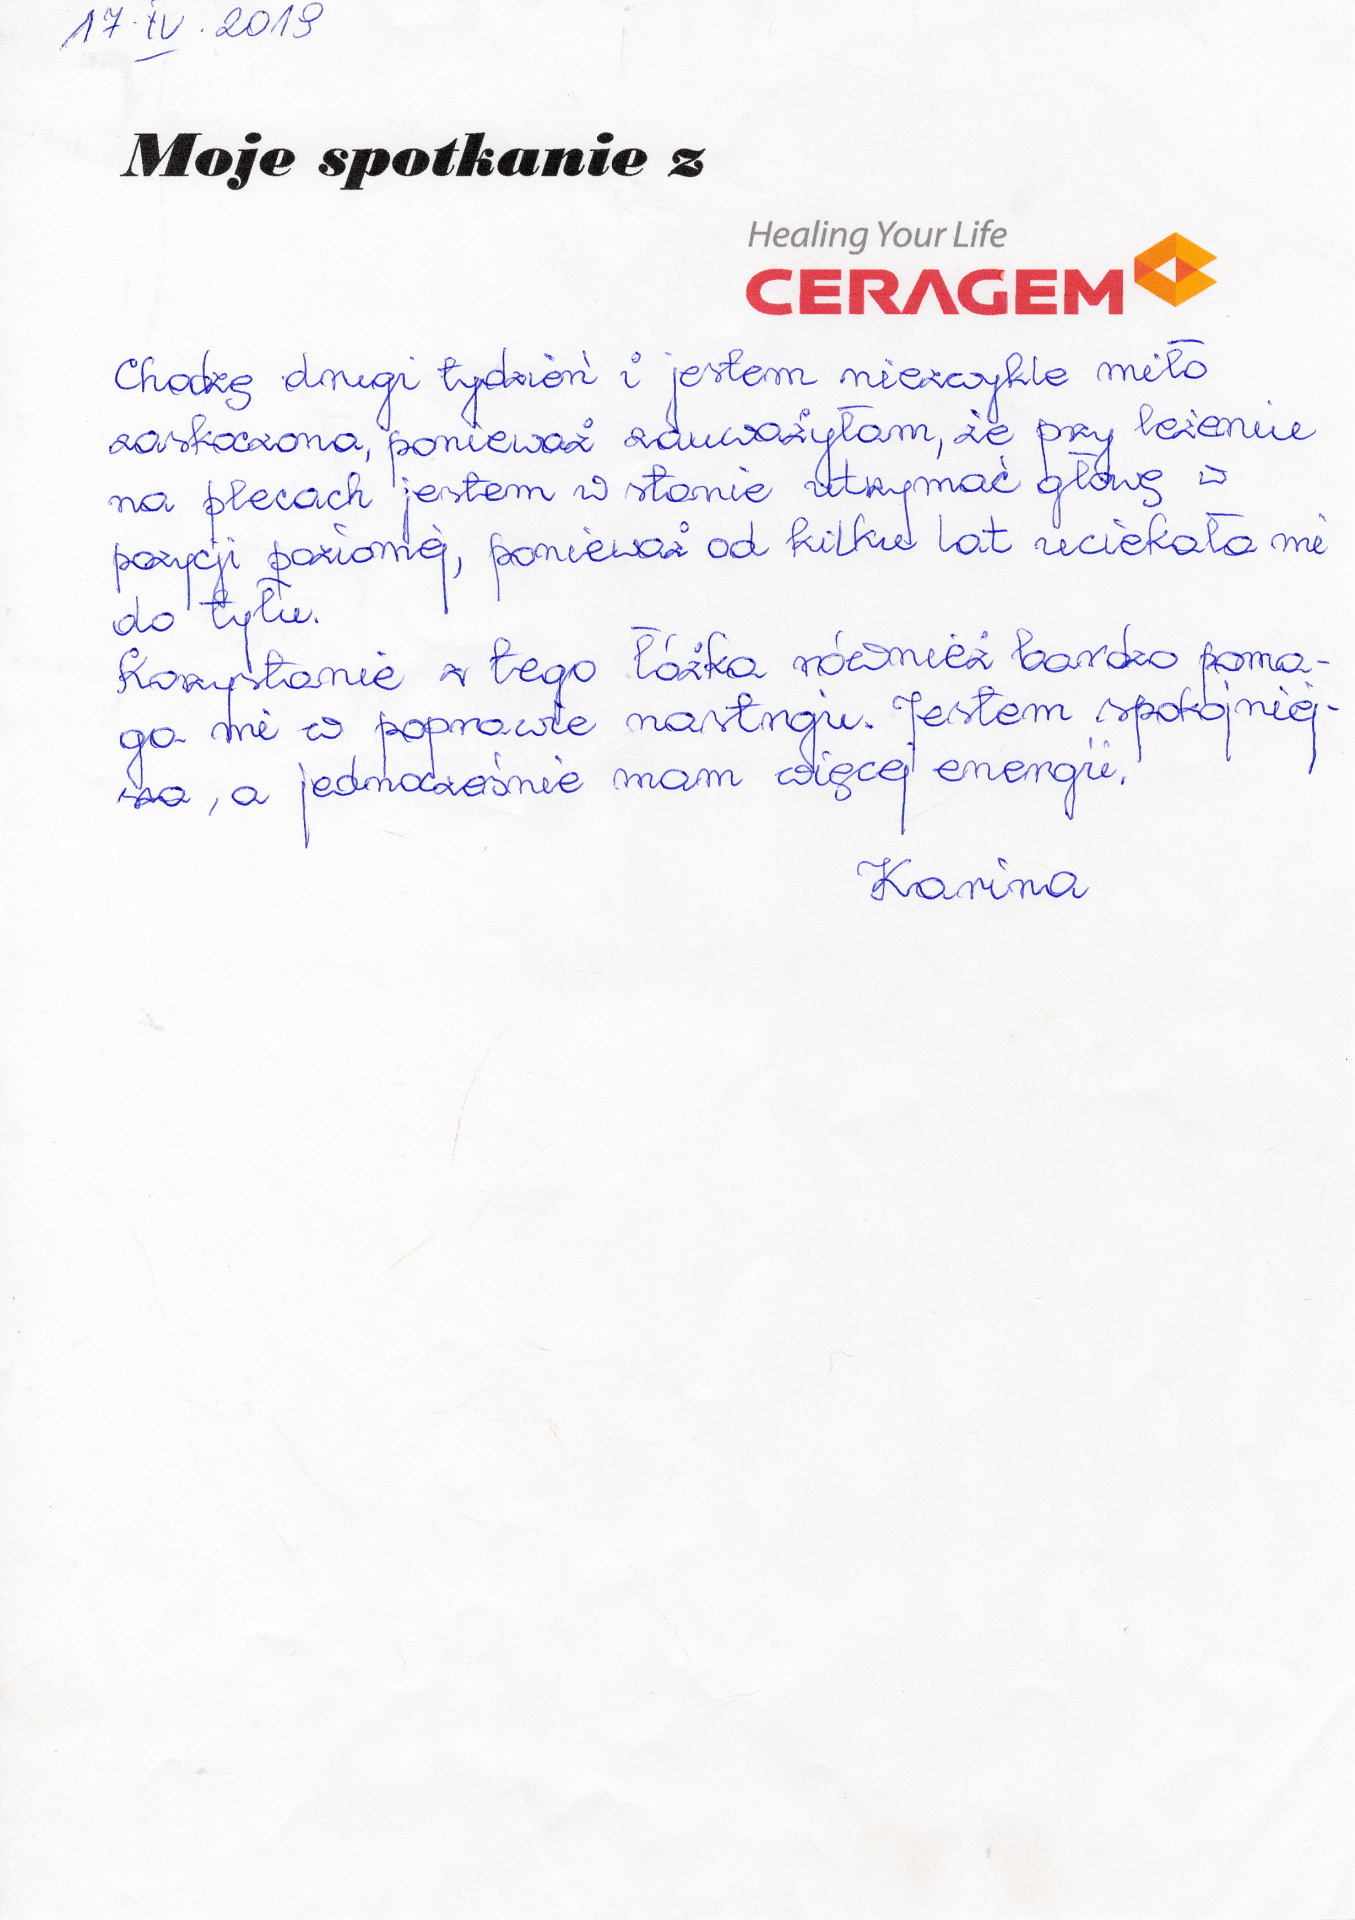 17.IV.2019
Moje spotkanie z
Healing Your Life
CERAGEM
Chodzę drugi tydzień i jestem niezwykle miło
zaskoczona, ponieważ zauważyłam, że przy leżeniu
na plecach jestem w stanie utrzymać głowę w
pozycji poziomej, ponieważ od kilku lat uciekała mi
do tyłu.
Korzystanie z tego łóżka również bardzo poma-
ga mi w poprawie nastroju. Jestem spokojniej-
sza, a jednocześnie mam więcej energii.
Karina